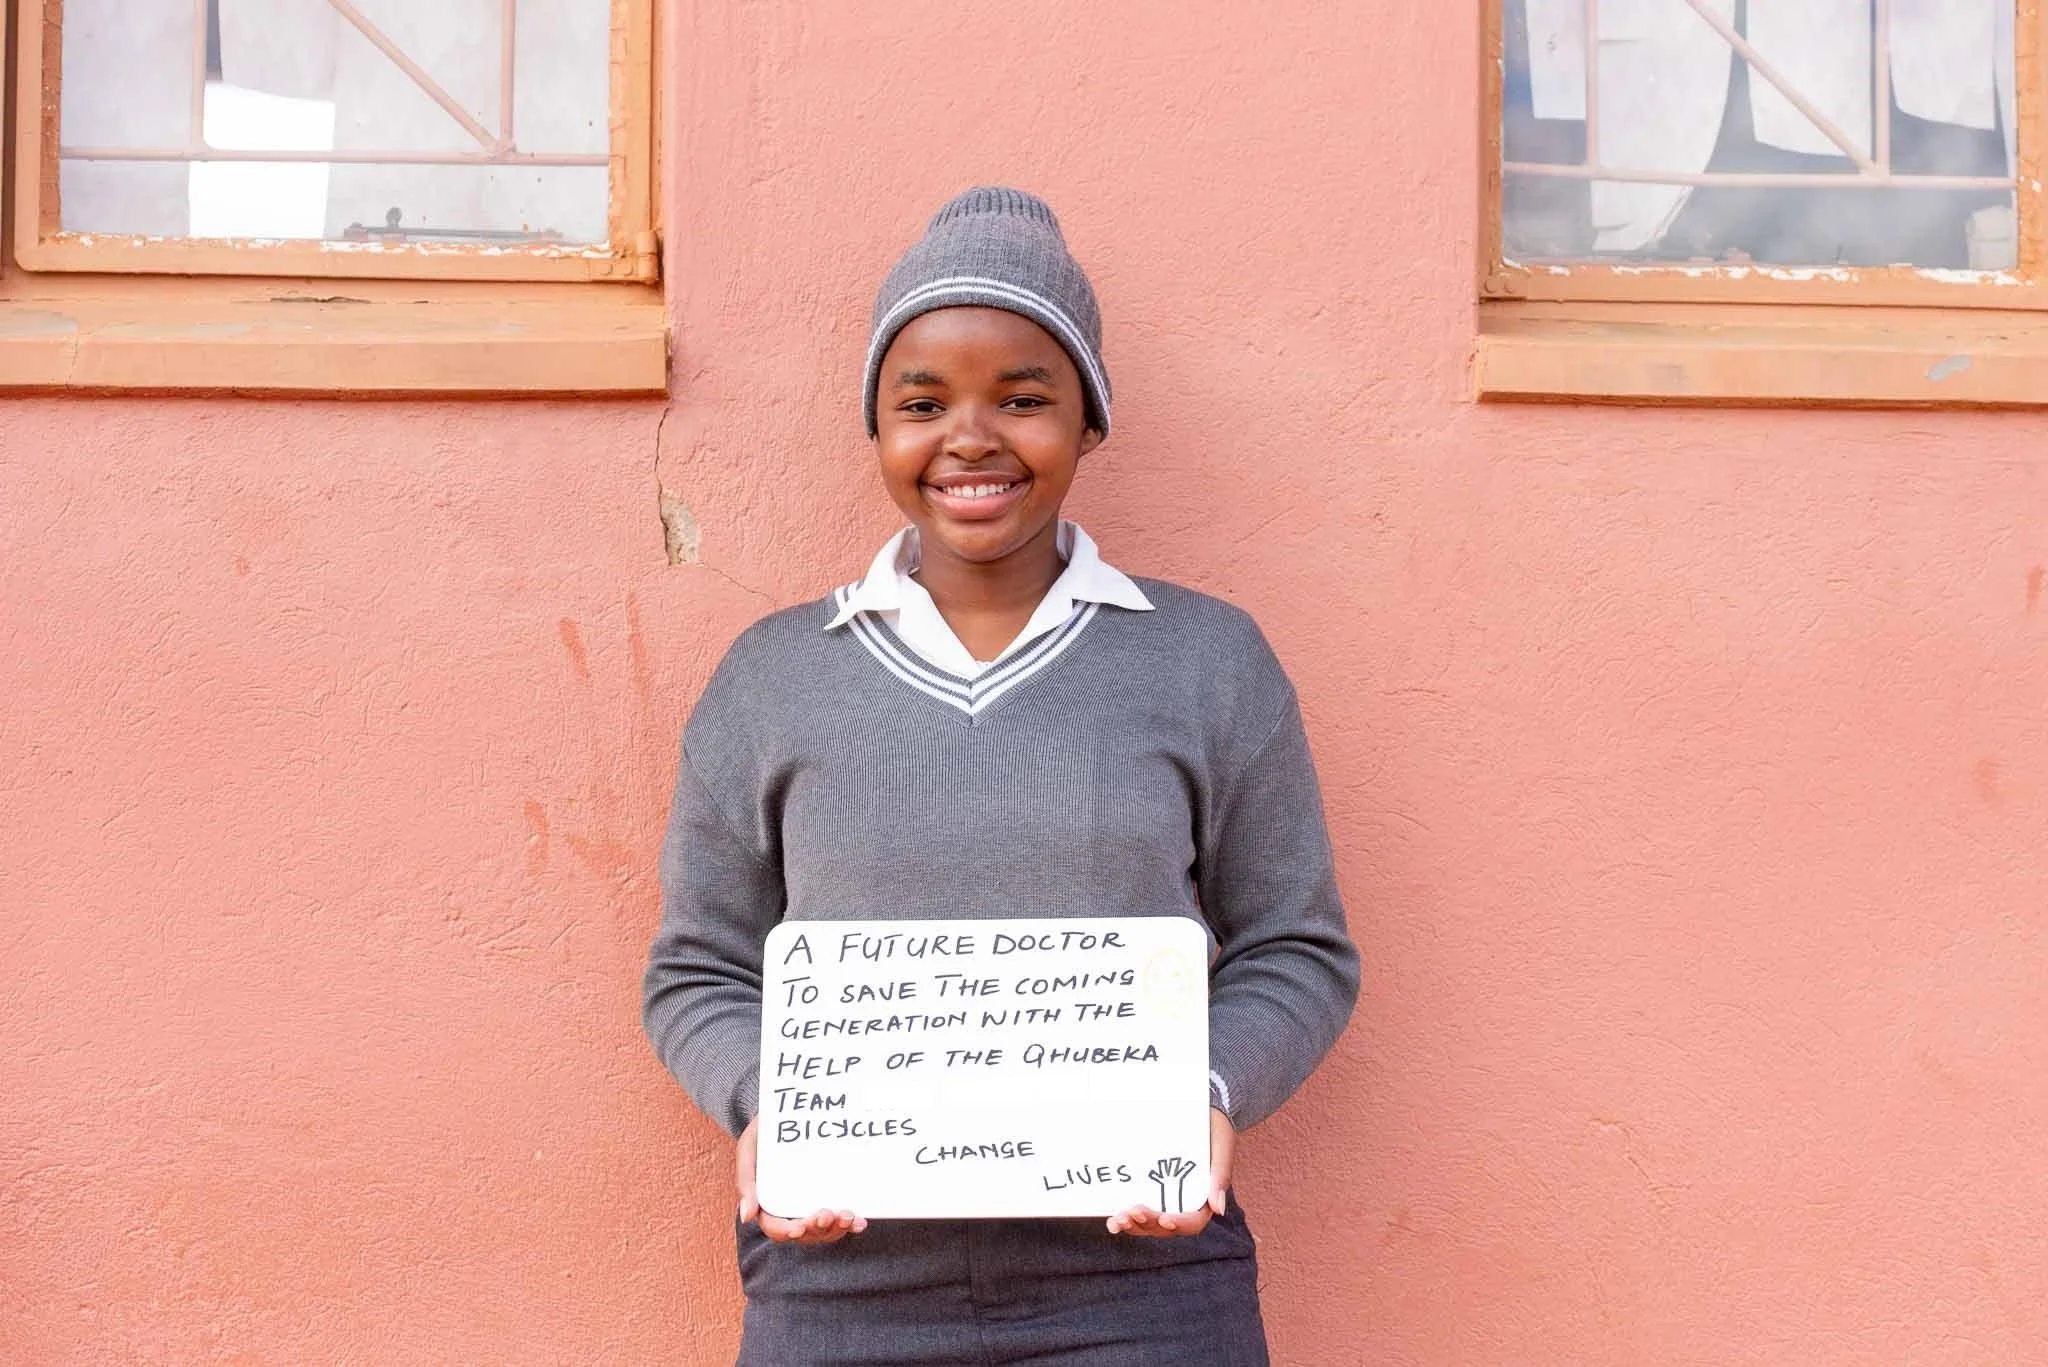 A FUTURE DOCTOR
TO SAVE THE COMING
GENERATION WITH THE
HELP OF THE QHUBEKA
TEAM
BICYCLES
CHANGE
LIVES